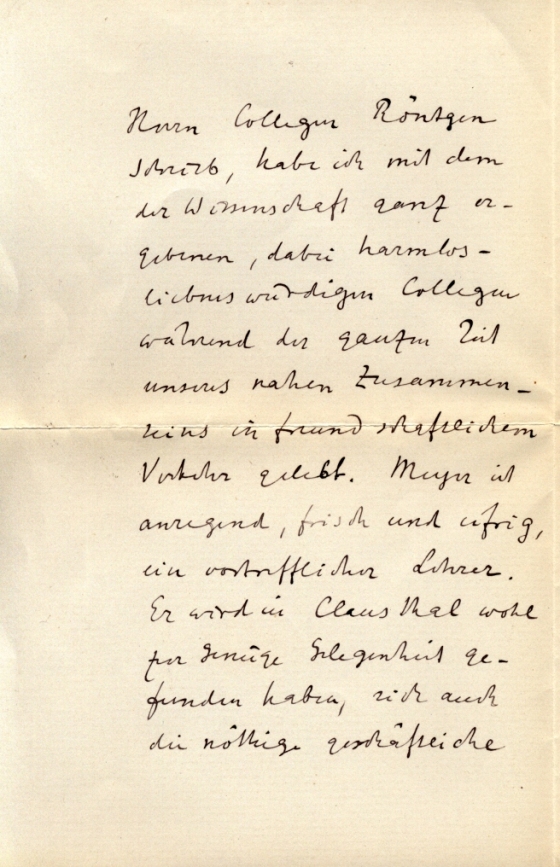 Herrn Collegen Röntgen
schrieb, habe ich mit dem
der Wissenschaft ganz er-
gebenen, dabei harmlos-
liebenswürdigen Collegen
während der ganzen Zeit
unseres nahen Zusammen-
seins in freundschaftlichem
Verkehr gelebt. Meyer ist
anregend, frisch und eifrig,
ein vortrefflicher Lehrer.
Er wird in Clausthal wohl
zur Genüge Gelegenheit ge-
funden haben, sich auch
die nöthige geschäftliche